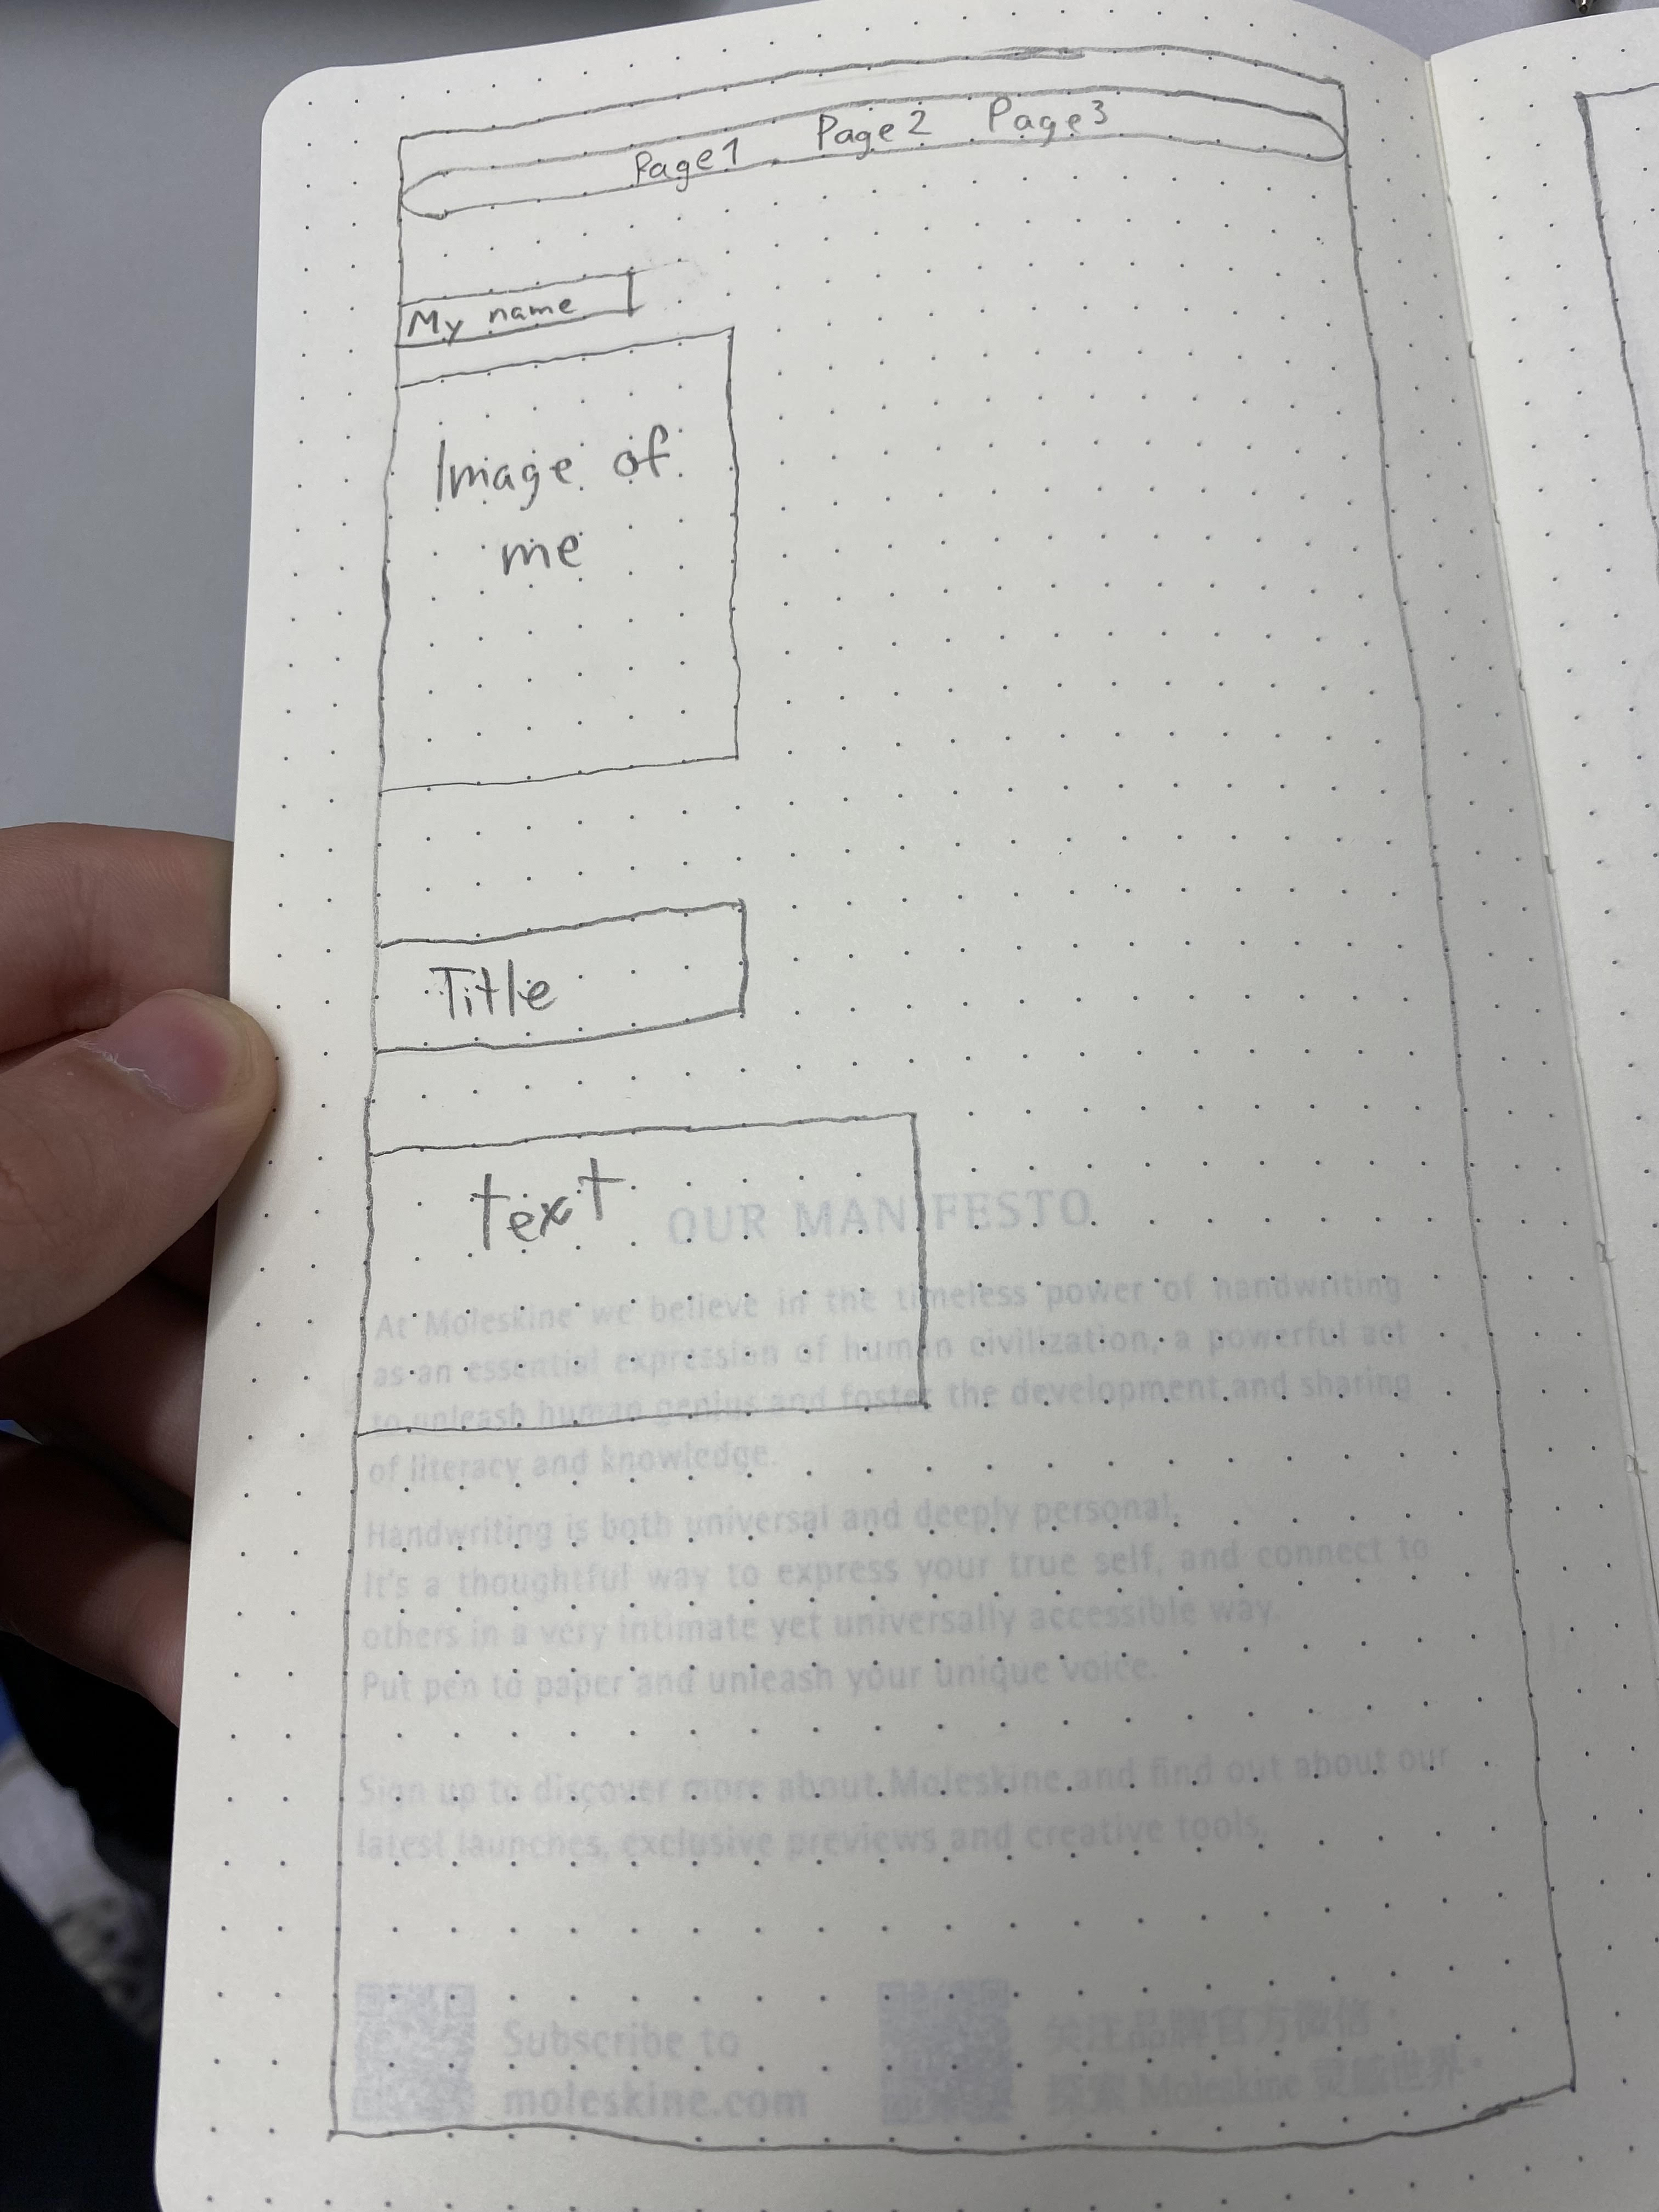 Page1 Page2 Page3
My name
Image of
me
Title
text
OUR MANIFESTO
At Moleskine we believe in the timeless power of handwriting
as an essential expression of human civilization, a powerful act
to unleash human genius and foster the development and sharing
of literacy and knowledge.
Handwriting is both universal and deeply personal.
It's a thoughtful way to express your true self, and connect to
others in a very intimate yet universally accessible way.
Put pen to paper and unleash your unique voice.
Sign up to discover more about Moleskine and find out about our
latest launches, exclusive previews and creative tools.
Subscribe to
moleskine.com
关注品牌官方微信，
探索 Moleskine 灵感世界。